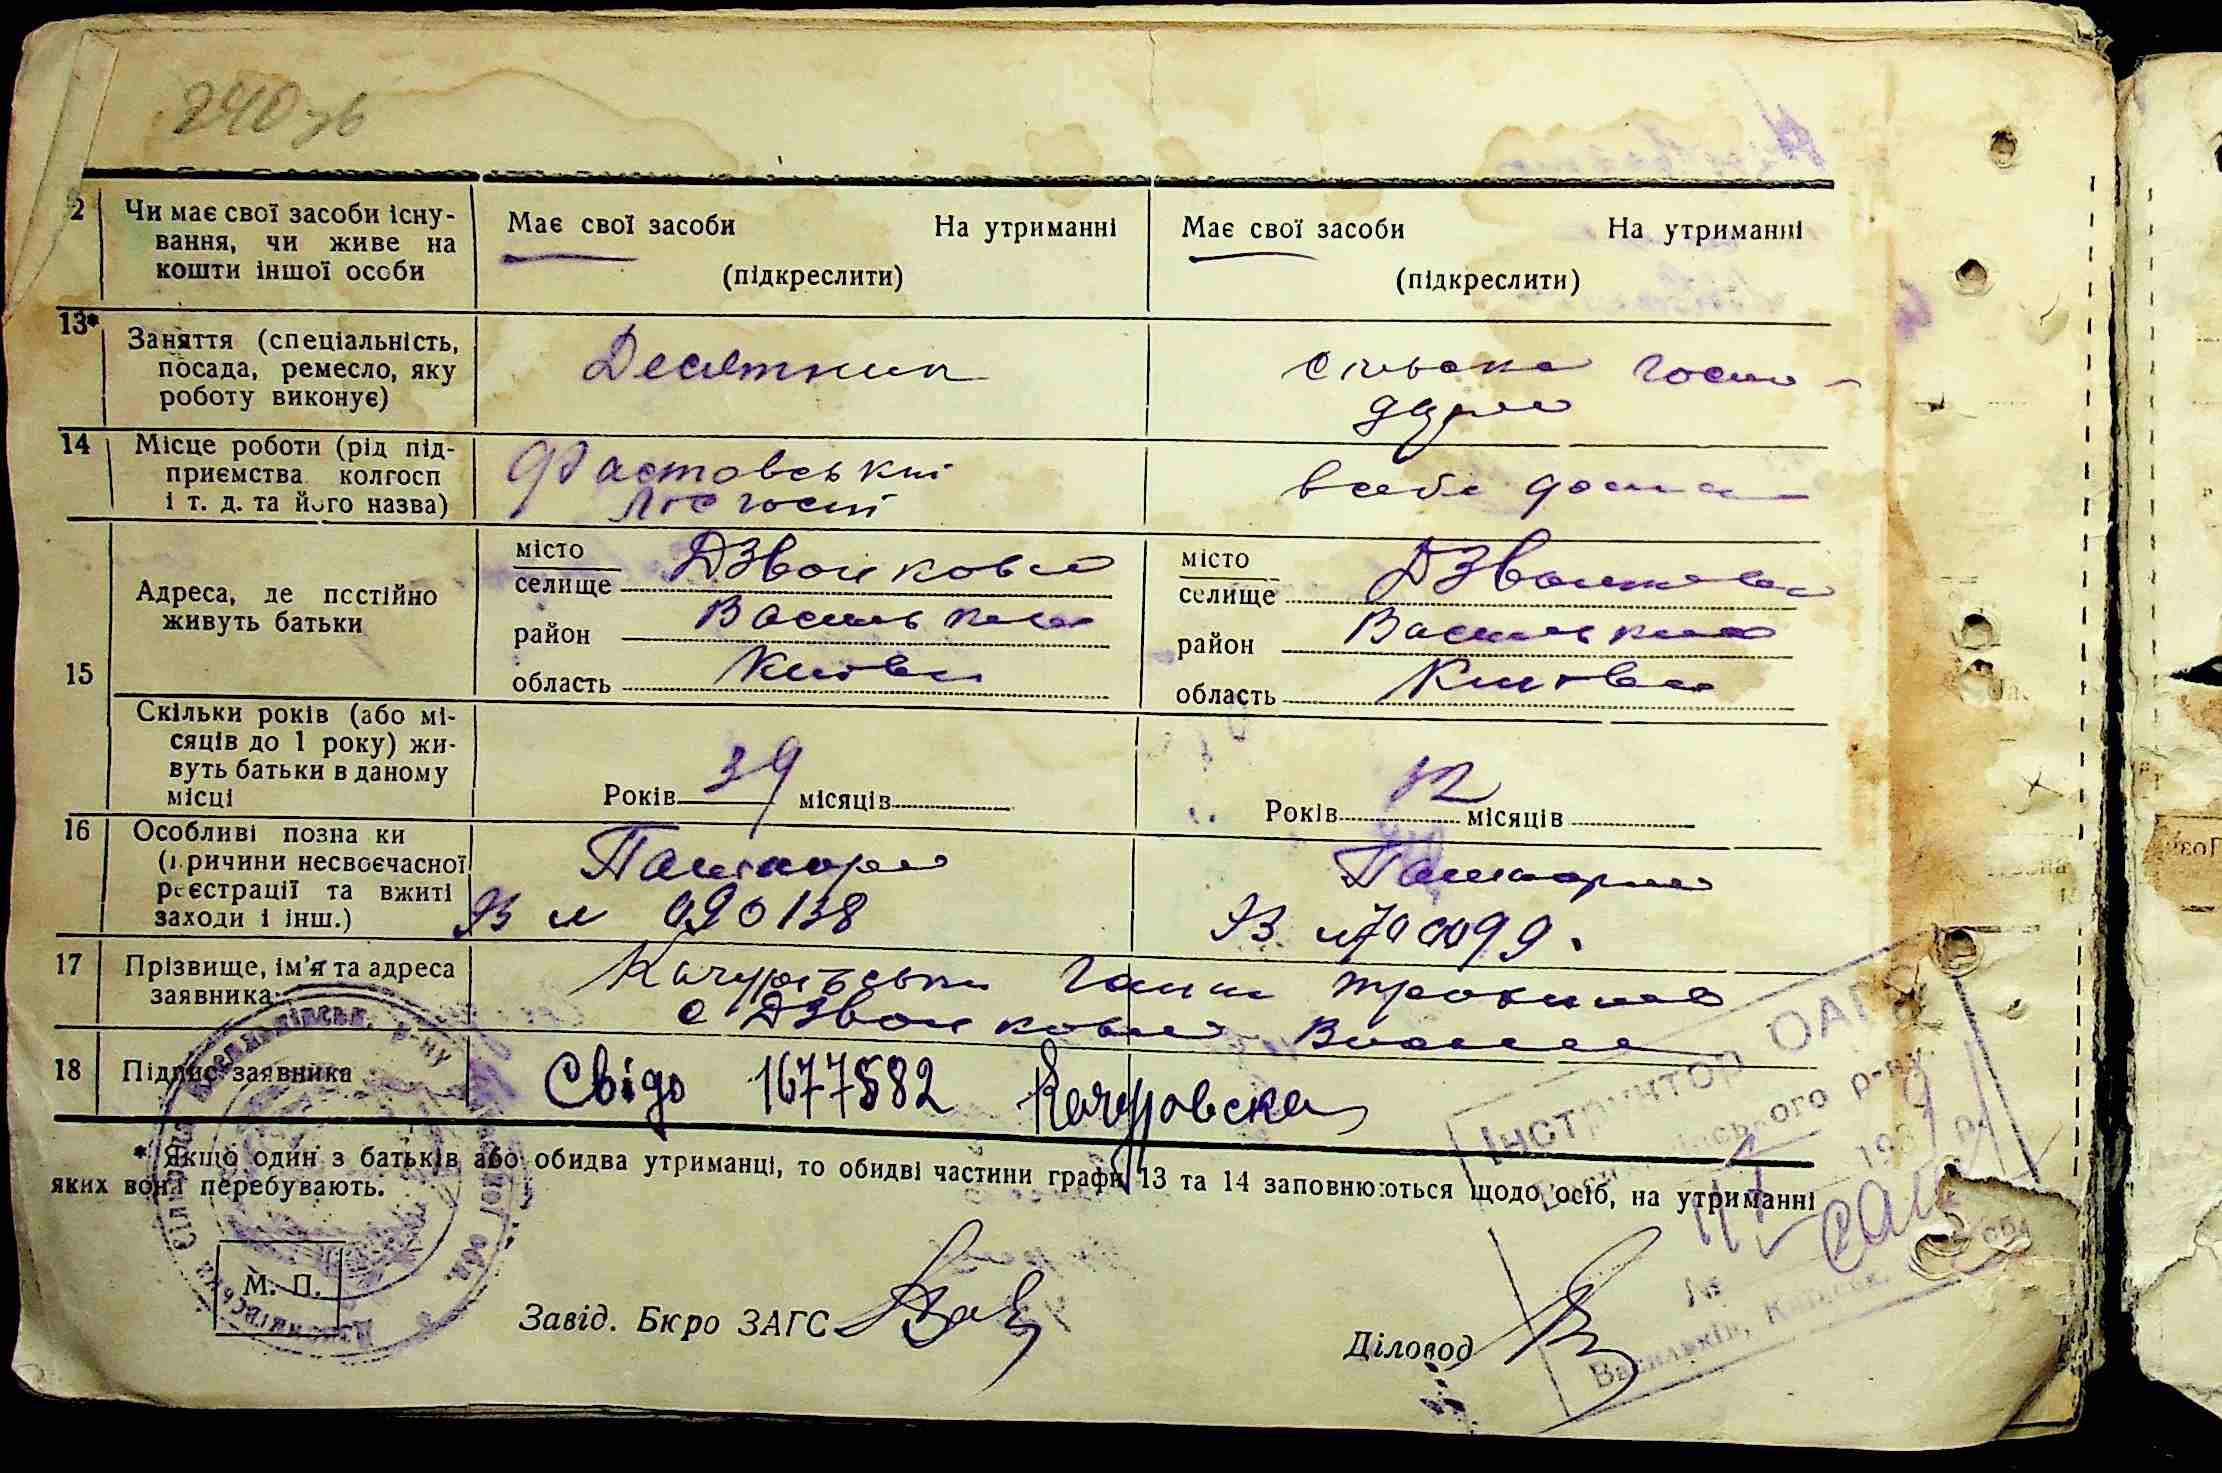 240 зв
2 Чи має свої засоби існу-
вання, чи живе на
кошти іншої особи
Має свої засоби На утриманні
(підкреслити)
Має свої засоби На утриманні
(підкреслити)
13* Заняття (спеціальність,
посада, ремесло, яку
роботу виконує)
Десятник
сільське госпо-
14 Місце роботи (рід під-
приємства колгосп
і т. д. та його назва)
Фастовський
в себе дома
15 Адреса, де постійно
живуть батьки
місто
селище Дзвонкова
район Васильків
область Київськ
місто
селище Дзвонкова
район Васильків
область Київськ
Скільки років (або мі-
сяців до 1 року) жи-
вуть батьки в даному
місці
Років 39 місяців
Років 12 місяців
16 Особливі позна ки
(причини несвоєчасної
реєстрації та вжиті
заходи і інш.)
Паспорт
020138
Паспорт
17 Прізвище, ім'я та адреса
заявника
Качуровська Ганна
с Дзвонкова
18 Підпис заявника
Свідо 1677582 Качуровска
* Якщо один з батьків або обидва утриманці, то обидві частини графи 13 та 14 заповнюються щодо осіб, на утриманні
яких вони перебувають.
М. П.
Завід. Бюро ЗАГС
Діловод
Інструктор ОАГС
р-ну
193
№
Васильків,